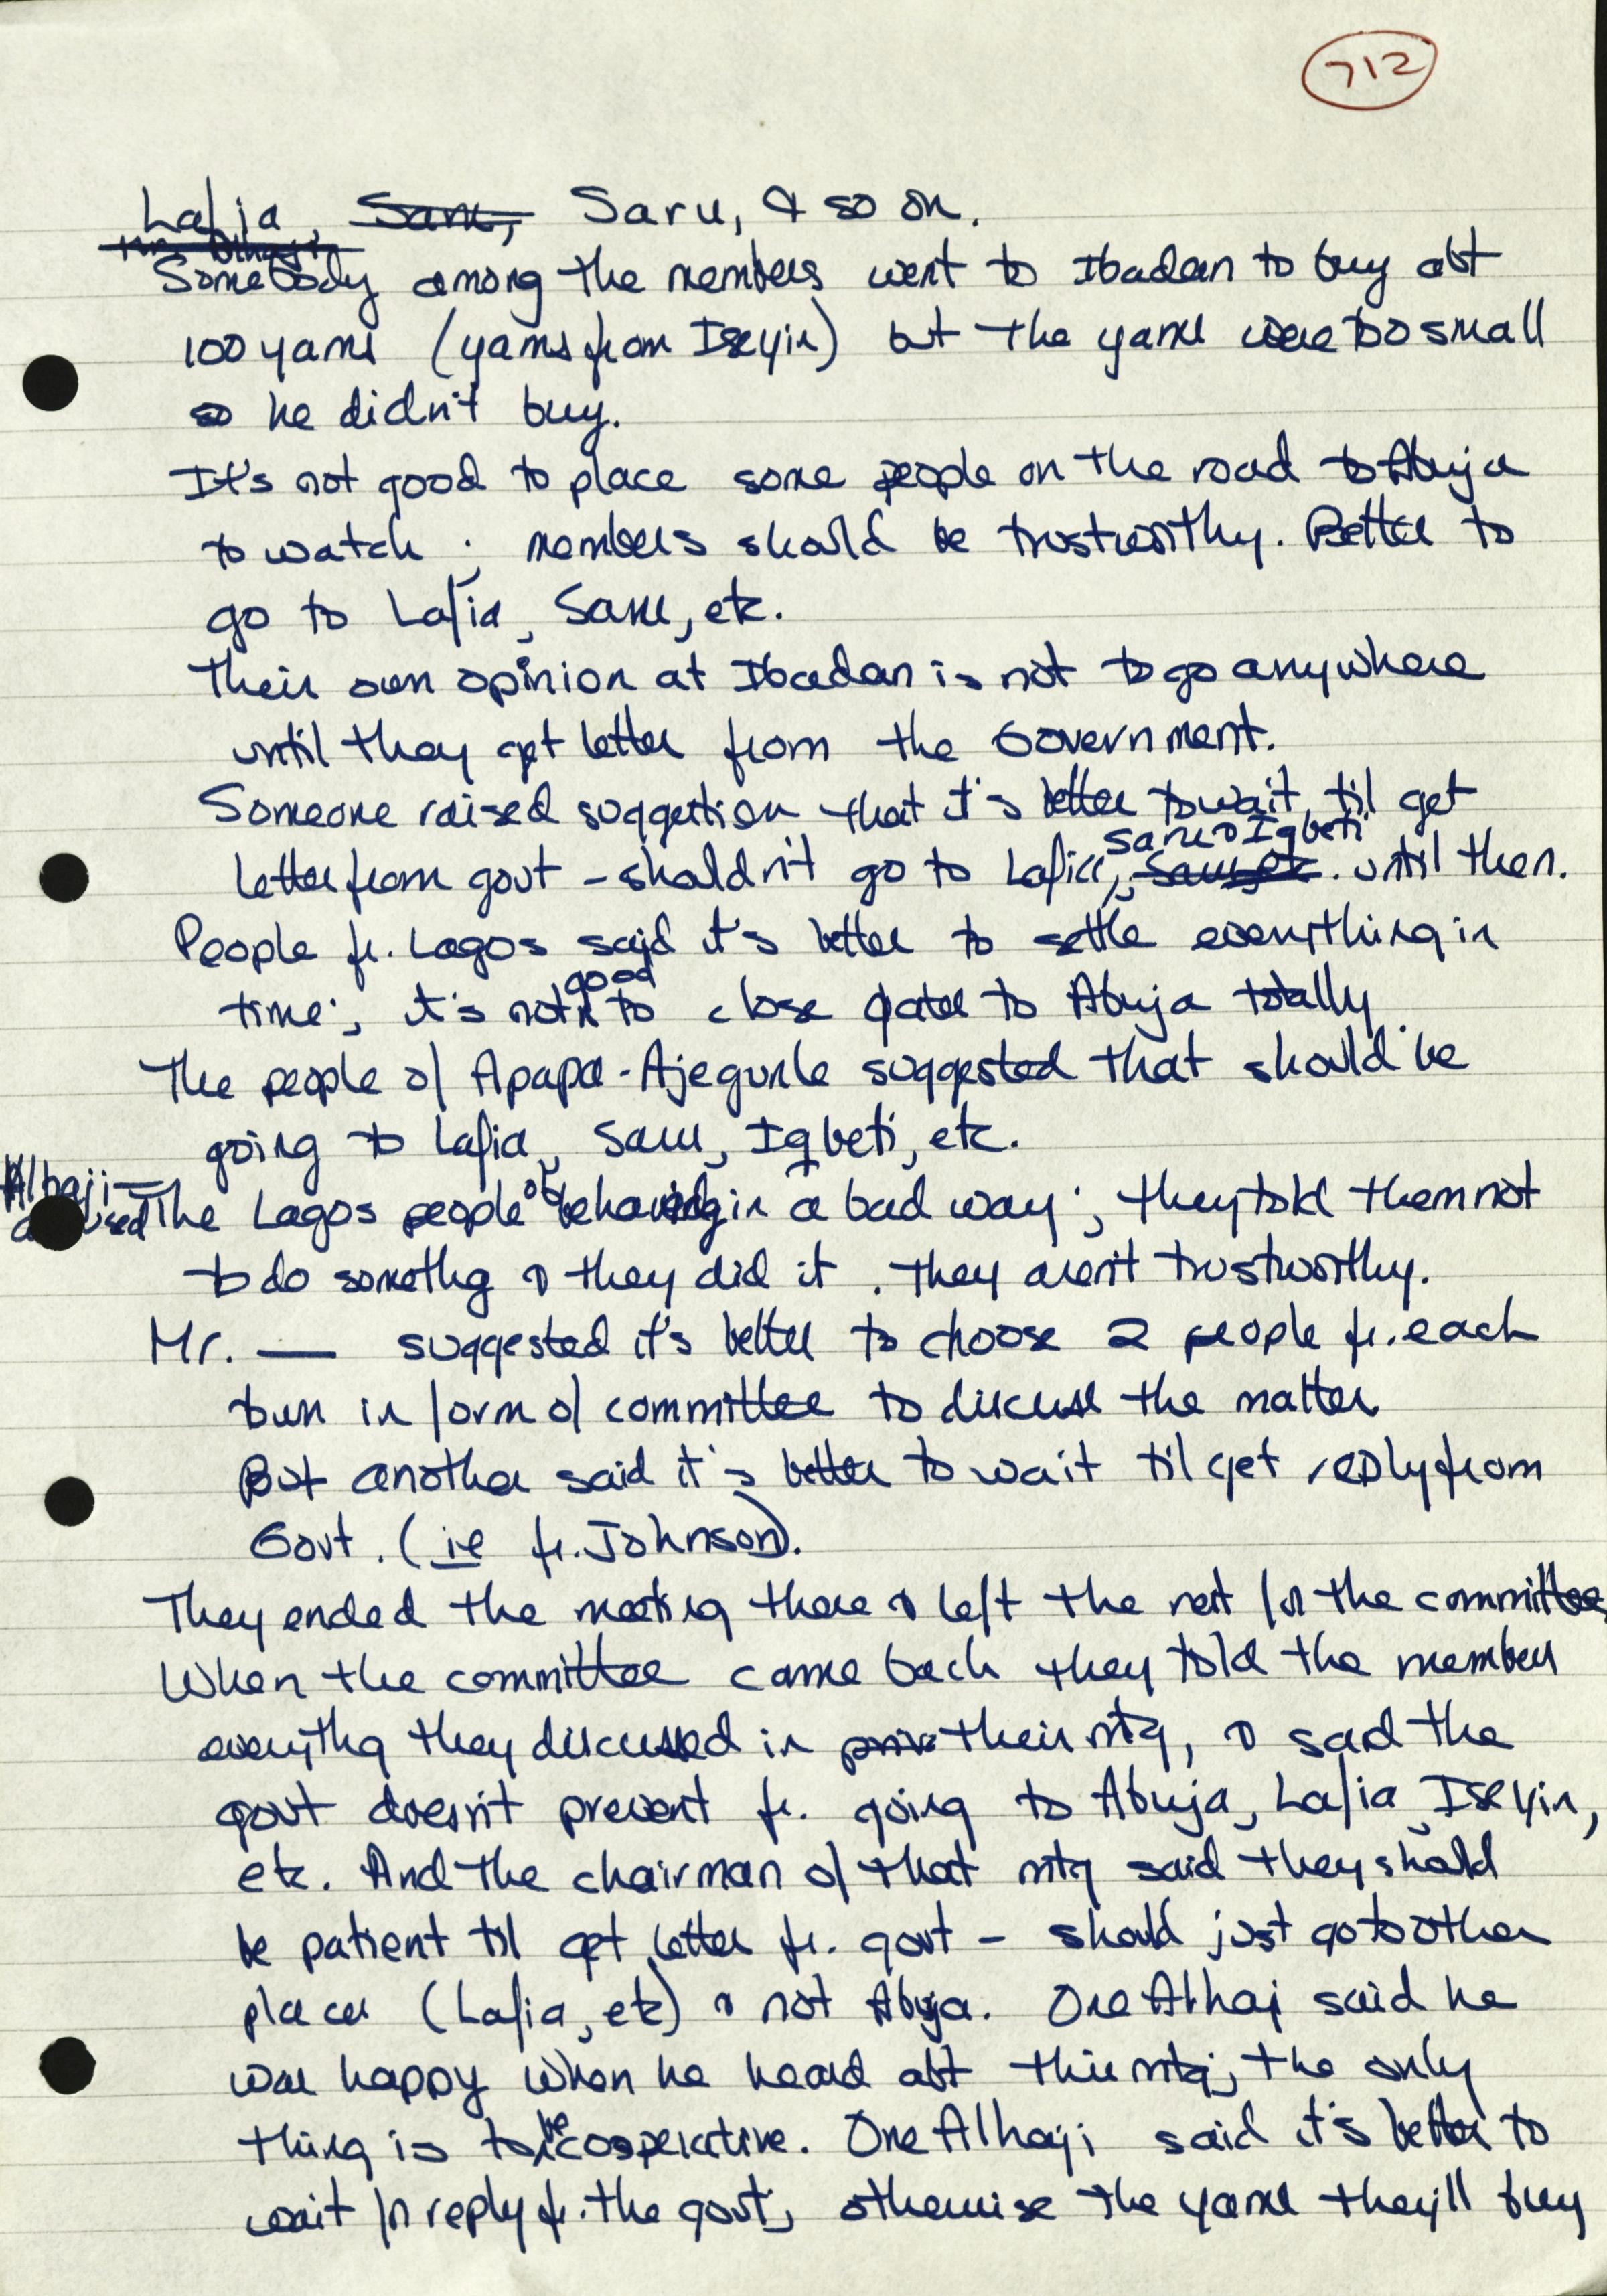 712
Lafia, Saru, Saru, & so on.
Somebody among the members went to Ibadan to buy abt
100 yams (yams from Iseyin) but the yams were too small
so he didn't buy.
It's not good to place some people on the road to Abuja
to watch; members should be trustworthy. Better to
go to Lafia, Saru, etc.
Their own opinion at Ibadan is not to go anywhere
until they get letter from the Government.
Someone raised suggestion that it's better to wait til get
letter from govt - shouldn't go to Lafia, Saru & Igbeti until then.
People fr. Lagos said it's better to settle everything in
time; it's not good to close gates to Abuja totally.
The people of Apapa-Ajegunle suggested that should be
going to Lafia, Saru, Igbeti, etc.
Alhaji — accused The Lagos people of behaving in a bad way; they told them not
to do somethg & they did it. They aren't trustworthy.
Mr. — suggested it's better to choose 2 people fr. each
town in form of committee to discuss the matter
But another said it's better to wait til get reply from
Govt. (ie fr. Johnson).
They ended the meeting there & left the rest for the committee.
When the committee came back they told the members
everythg they discussed in their mtg, & said the
govt doesn't prevent fr. going to Abuja, Lafia, Iseyin,
etc. And the chairman of that mtg said they should
be patient til get letter fr. govt - should just go to other
places (Lafia, etc) & not Abuja. One Alhaji said he
was happy when he heard abt this mtg; the only
thing is to be cooperative. One Alhaji said it's better to
wait for reply fr. the govt; otherwise the yams they'll buy